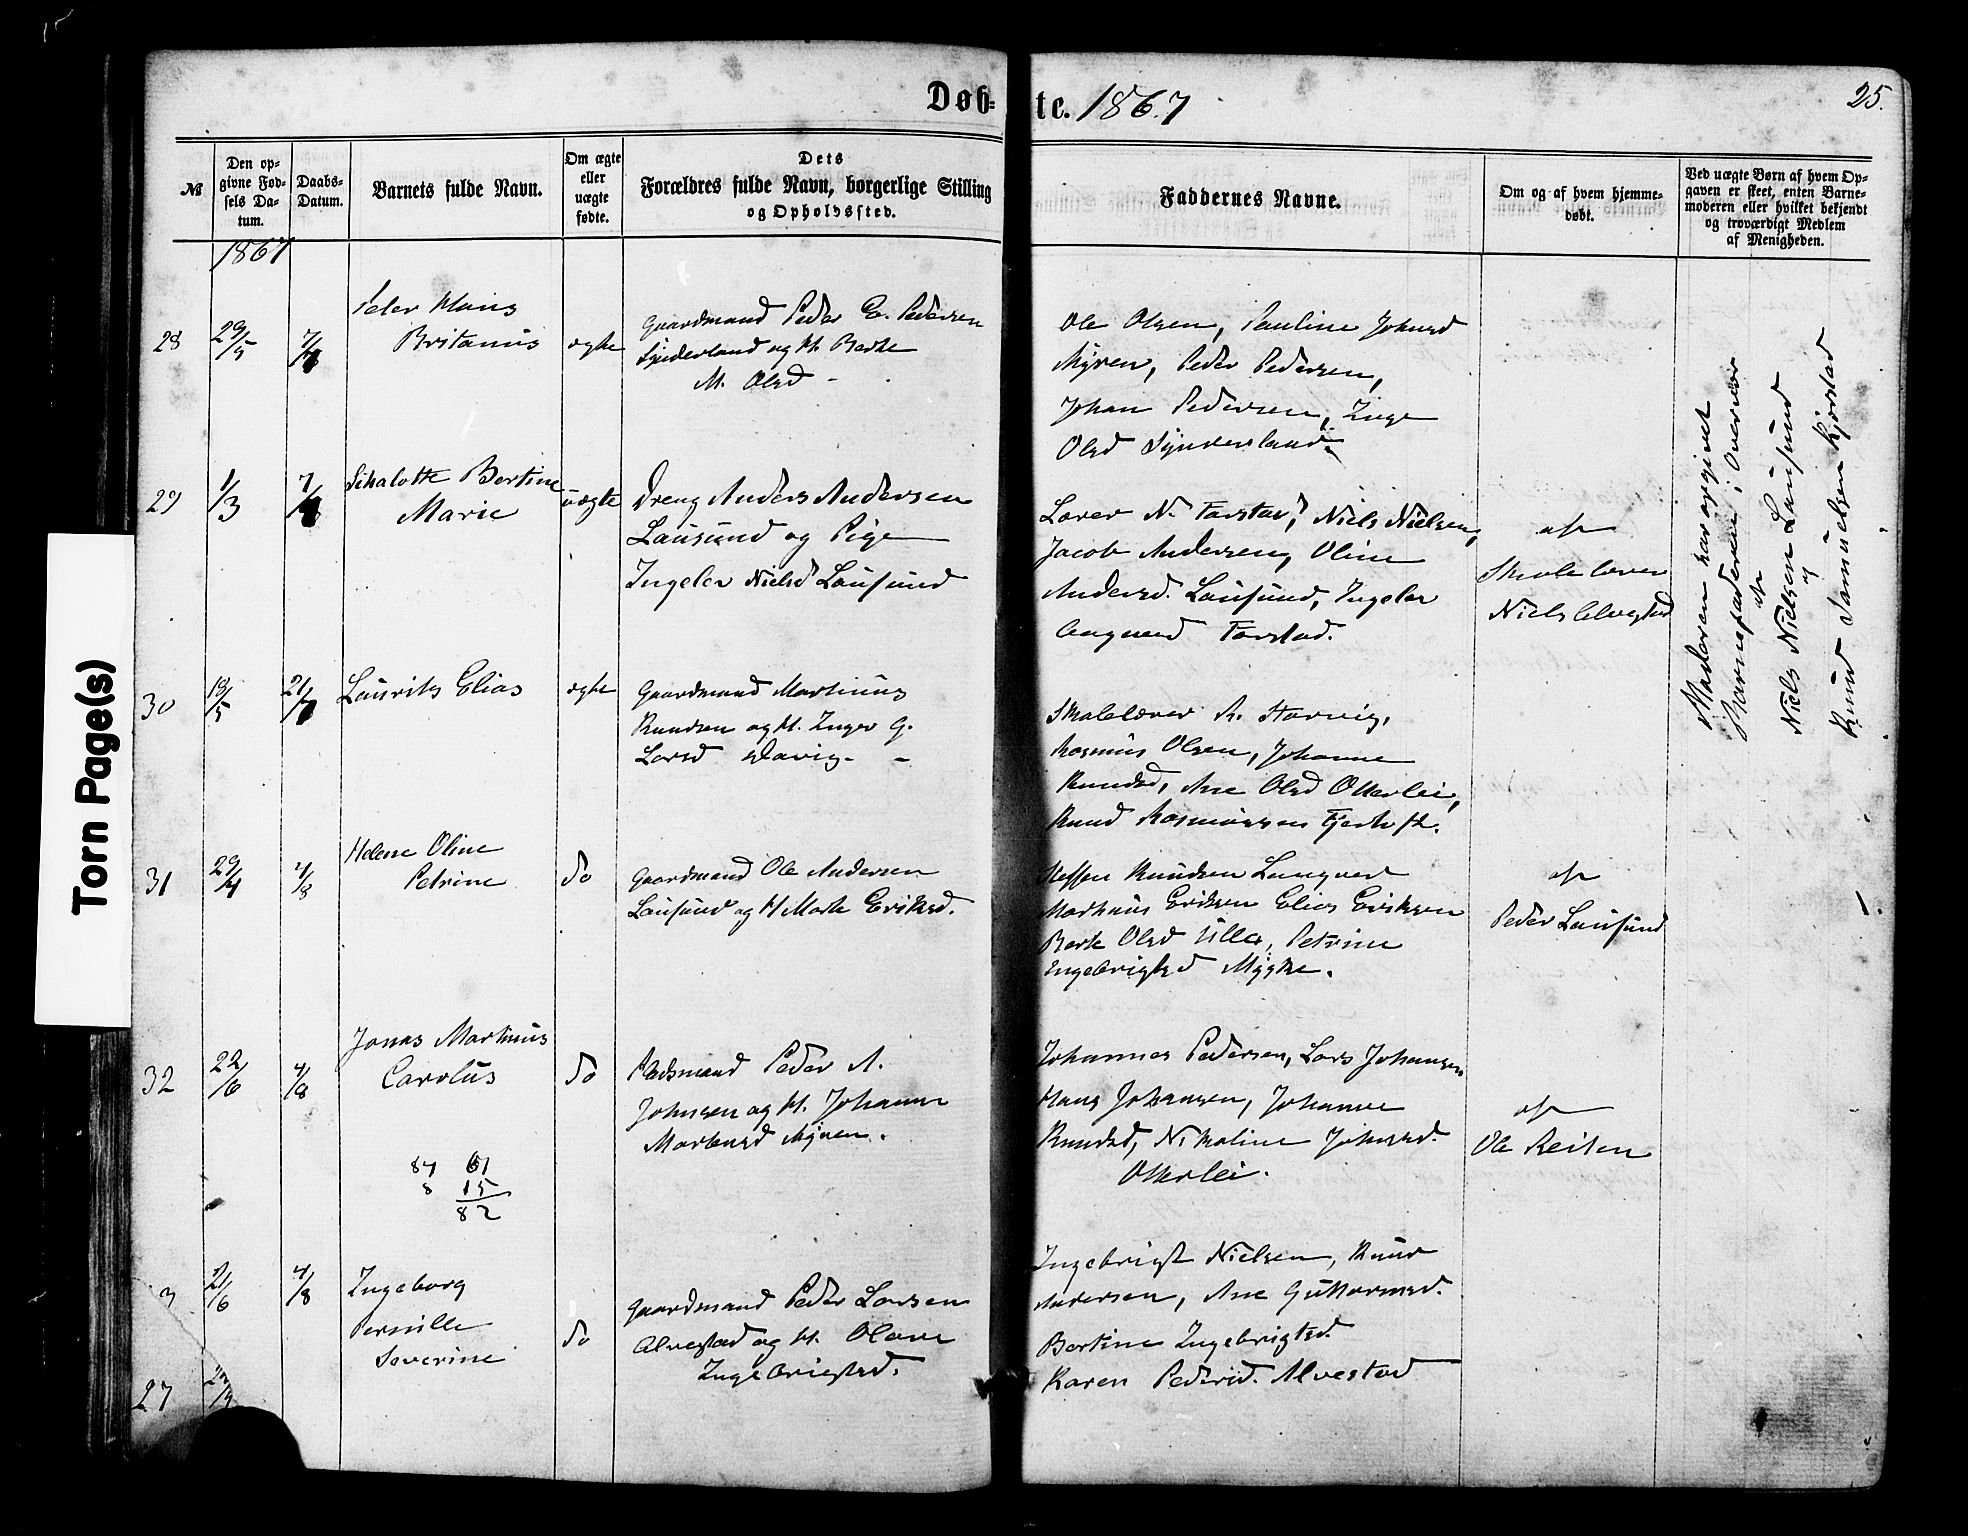 Døb=
te. 1867
25.
Torn Page(s)
№
Den op-
givne Fød-
sels Da-
tum.
Daabs-
Datum.
Barnets fulde Navn.
Om ægte
eller
uægte
fødte.
Dets
Forældres fulde Navn, borgerlige Stilling
og Opholdssted.
Faddernes Navne.
Om og af hvem hjemme-
døbt.
Ved uægte Børn af hvem Op-
gaven er skeet, enten Barne-
moderen eller hvilket bekjendt
og troværdigt Medlem
af Menigheden.
1867
28
29/5
7/7
Peder Hans
Britanus
ægte
Gaardmand Peder E. Pedersen
Synderland og H. Berte
M. Olsd -
Ole Olsen, Pauline Johnsd
Myren, Peder Pedersen,
Johan Pedersen, Inge
Olsd Synderland.
29
1/3
Bertine
Marie
uægte
Dreng Anders Andersen
Lausund og Pige
Ingeler Nielsd Lausund
Lærer N. Farstad, Niels Nielsen,
Jacob Andersen, Oline
Andersd. Lausund, Ingeler
Farstad.
af
Skolelærer
Niels Alvestad
Moderen har opgivet
Barnefaderen i Overvær
af
Niels Nielsen Lausund
og
Knud Samuelsen Kjørstad
30
18/5
21/7
Laurits Elias
ægte
Gaardmand Martinus
Knudsen og H. Inger G.
Larsd
Skolelærer A. Storvig,
Rasmus Olsen, Johanne
Knudsd, Ane Olsd Otterlei,
Knud Rasmussen Fjørtoft.
31
29/4
4/8
Helene Oline
Petrine
do
Gaardmand Ole Andersen
Lausund og H Marte Eriksd.
Steffen Knudsen Langved
Markus Eriksen Elias Eriksen
Berte Olsd Ulla, Petrine
Ingebrigtsd Mykle.
af
Peder Lausund
1.
32
22/6
4/8
Jonas Martinus
Carolus
do
Pladsmand Peder A.
Johnsen og H. Johanne
Mortensd Myren.
Johannes Pedersen, Lars Johansen
Hans Johansen, Johanne
Knudsd, Nikoline Johnsd.
Otterlei.
af
Ole Reiten
84 61
8 15
82
3
2/6
4/8
Ingeborg
Pernille
Severine
do
Gaardmand Peder Larsen
Alvestad og H. Olave
Ingebrigtsd.
Ingebrigt Nielsen, Knud
Andersen, Ane Guttormsd.
Bertine Ingebrigtsd.
Karen Pedersd. Alvestad
27